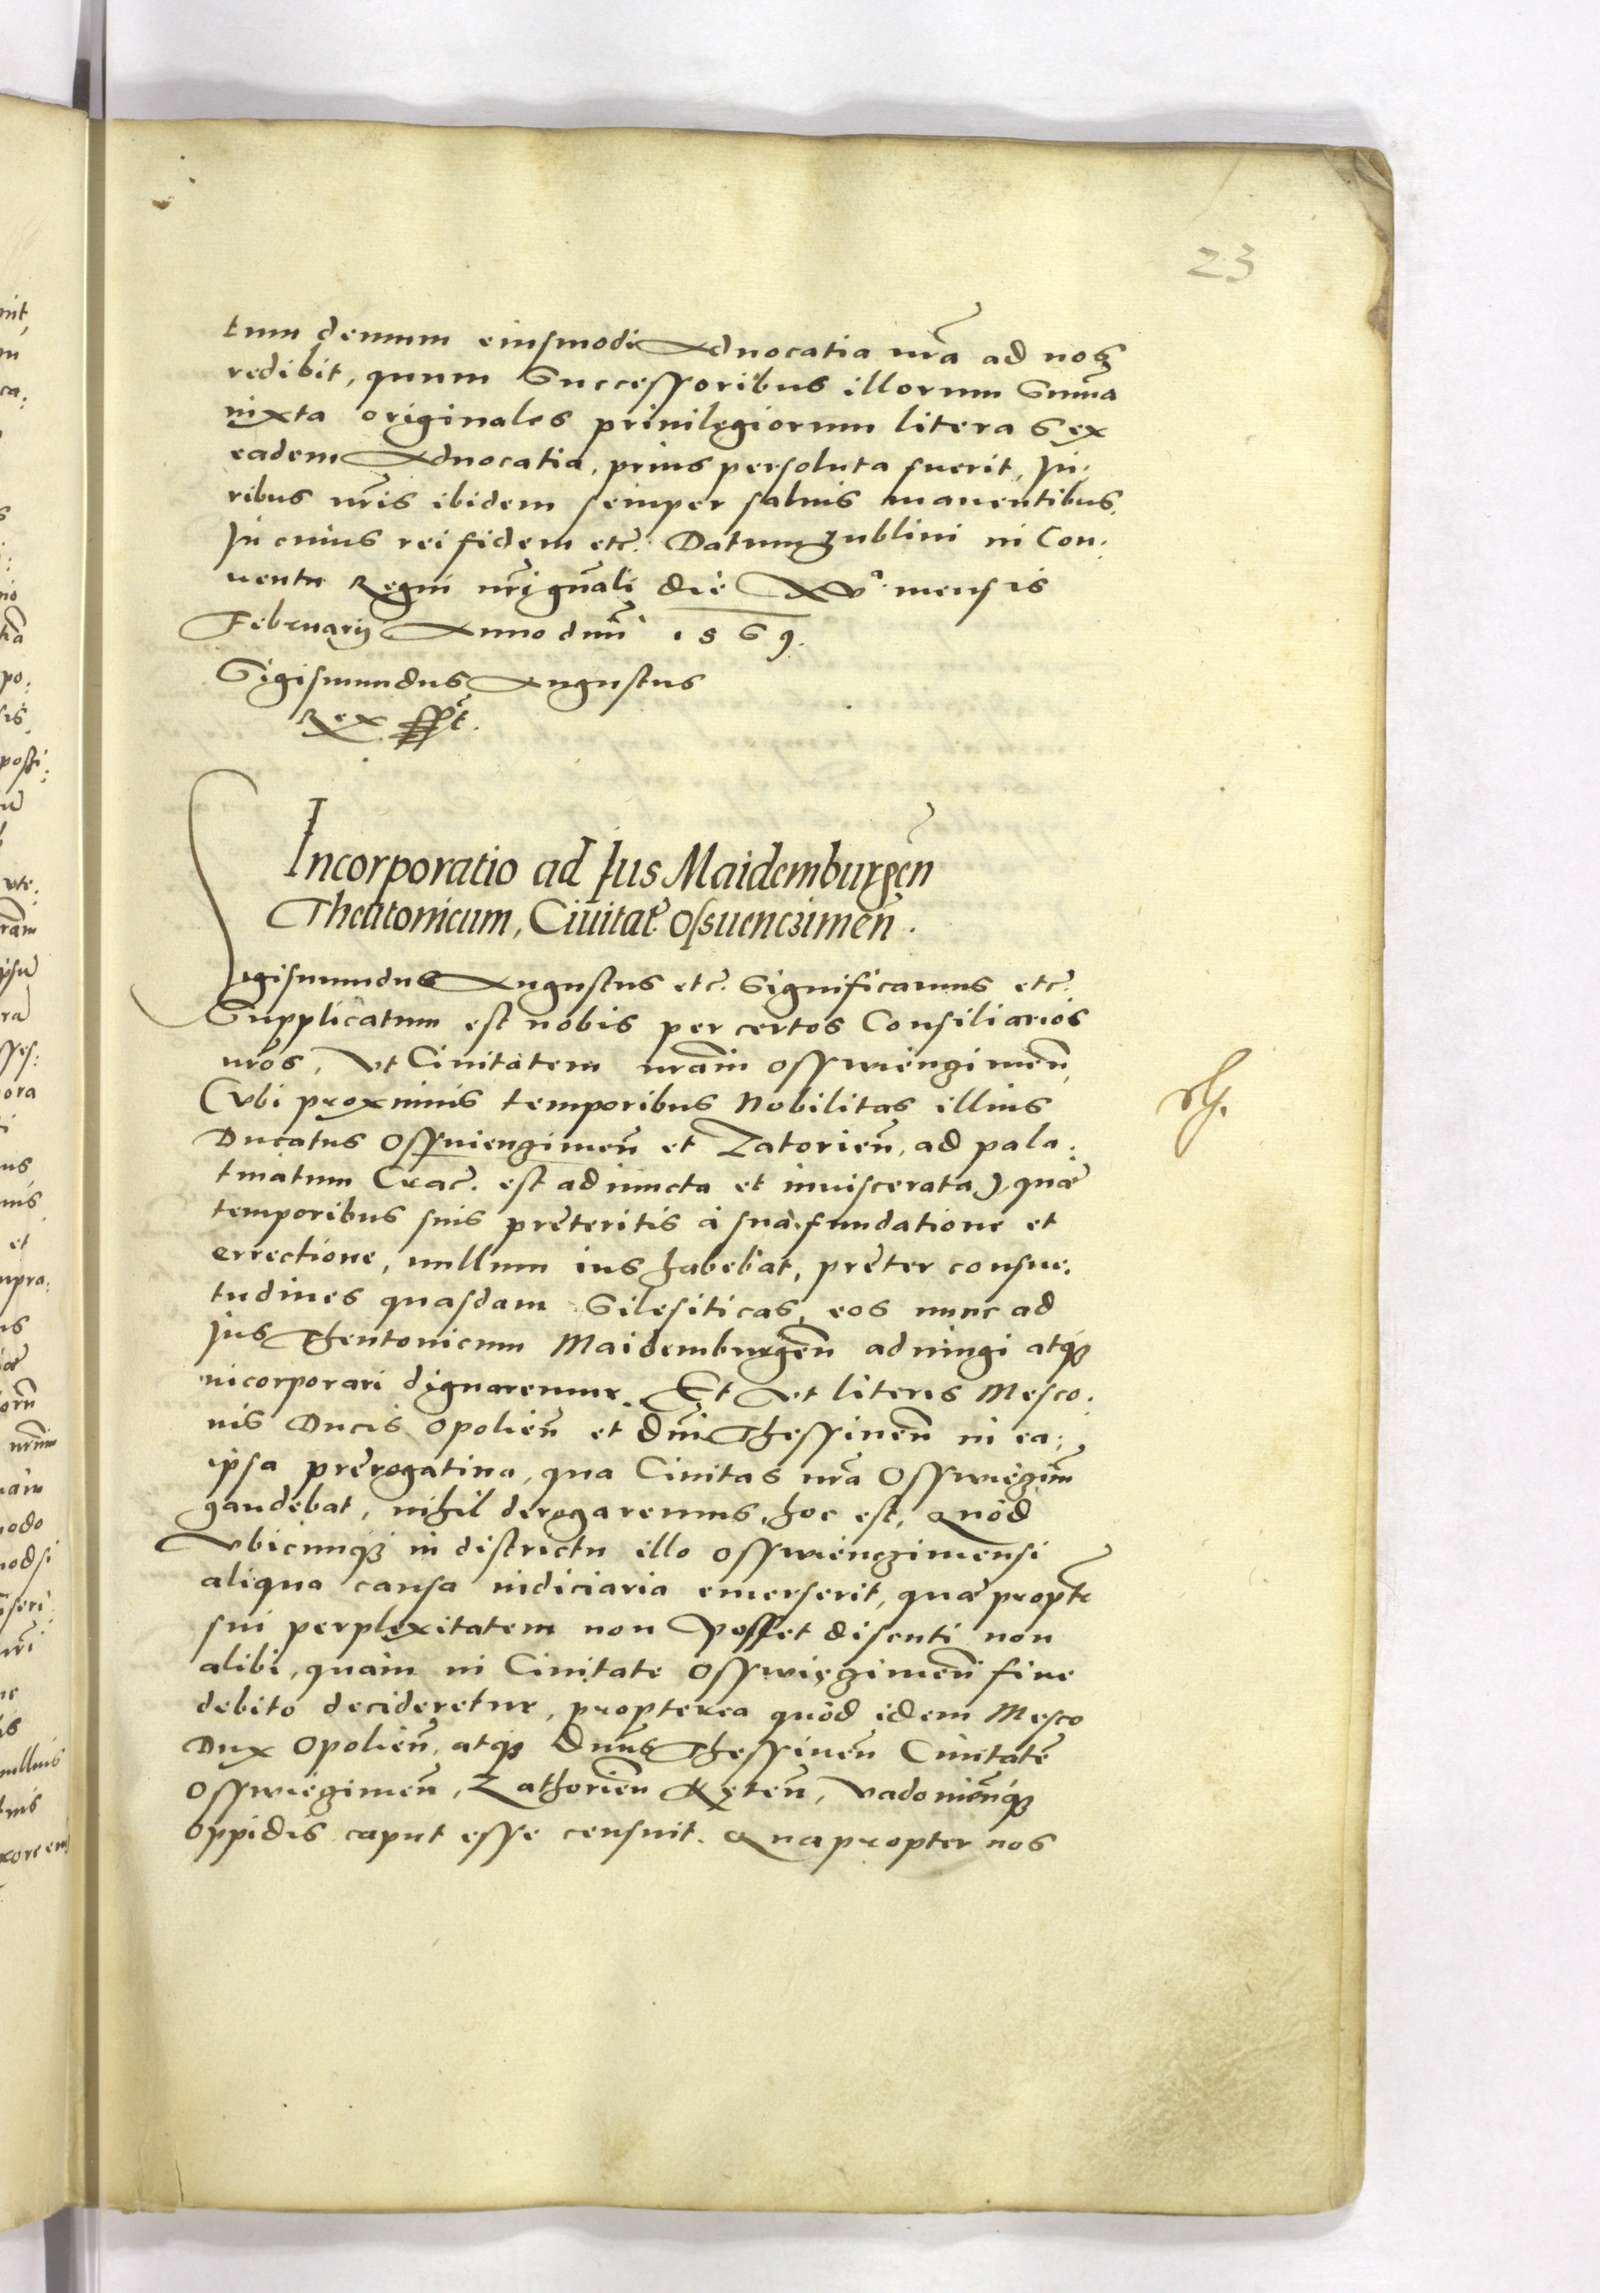 23
tum demum eiusmodi Aduocatia nr̃a ad nos
redibit, quum Successoribus illorum Sum̃a
iuxta originales priuilegiorum literas ex
eadem Aduocatia, prius persoluta fuerit, Ju:
ribus nr̃is ibidem semper saluis manentibus.
Jn cuius rei fidem etc̃. Datum Lublini in Con:
uentu Regni nr̃i gñali die XVª mensis
Februarij Anno dñi 1569.
Sigismundus Augustus
Rex sspt̃.
Incorporatio ad Jus Maidemburgeñ
Theutonicum, Ciuitat̃. Ossuencimeñ.
Sigismundus Augustus etc̃. Significamus etc̃.
Supplicatum est nobis per certos Consiliarios
nr̃os, Vt Ciuitatem nr̃am Osswiengimeñ,
(vbi proximis temporibus Nobilitas illius
Ducatus Ossuiengimeñ et Zatorieñ, ad pala:
tinatum Crac̃. est adiuncta et inuiscerata), quæ
temporibus suis præteritis à sua fundatione et
errectione, nullum ius habebat, præter consue:
tudines quasdam Silesiticas, eos nunc ad
Jus Theutonicum Maidemburgeñ adiungi atq3
incorporari dignaremur. Et Vt literis Mesco:
nis Ducis Opolieñ et Dñi Thessineñ in ea:
ipsa prærogatiua, qua Ciuitas nr̃a Osswięgim̃
gaudebat, nihil derogaremus, hoc est, Quòd
Vbicunq3 in districtu illo Osswiencgimensi
aliqua causa iudiciaria emerserit, quæ propt̃
sui perplexitatem non posset discuti non
alibi, quàm in Ciuitate Osswięgimeñ fine
debito decideretur, propterea quòd idem Mesco
Dux Opolieñ, atq3 Dñus Thessineñ Ciuitatẽ
Osswięgimeñ, Zathorieñ Kęteñ, Vadouieñq3
oppidis caput esse censuit. Quapropter nos